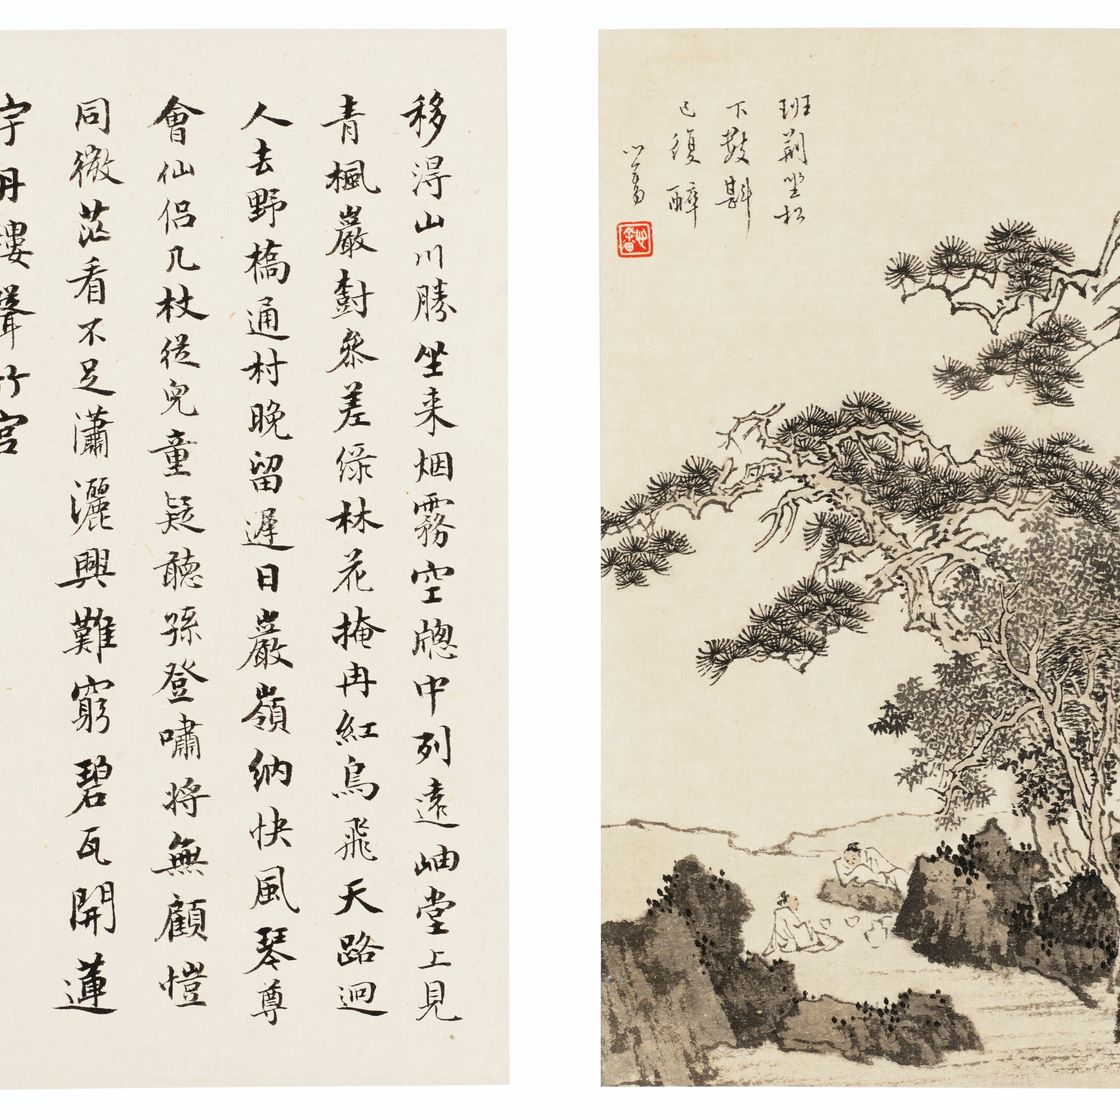 班荊坐松
下數斟
已復醉
心畬
心畬
移得山川勝坐来烟霧空牕中列遠岫堂上見
青楓巖樹參差緑林花掩冉紅鳥飛天路迥
人去野橋通村晚留遲日巖嶺納快風琴尊
會仙侶几杖從兒童疑聽孫登嘯將無顧愷
同微茫看不足瀟灑興難窮碧瓦開蓮
宇丹樓聳竹宮